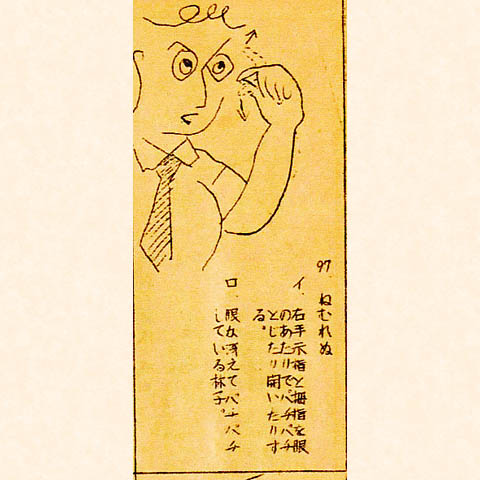 97. ねむれぬ
イ、右手示指と拇指を眼
のあたりでパチパチ
とじたり開いたりす
る。
ロ、眼が冴えてパチパチ
している様子。